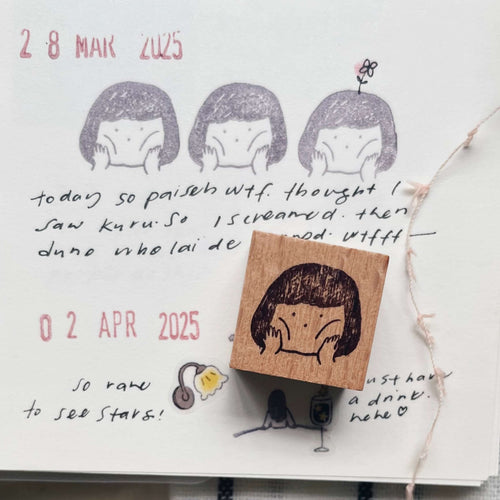 28 MAR 2025
today so paiseh wtf. thought I
saw kuru. so I screamed. then
duno who lai de wtfff
02 APR 2025
so rare
to see stars!
just have
a drink.
hehe♡